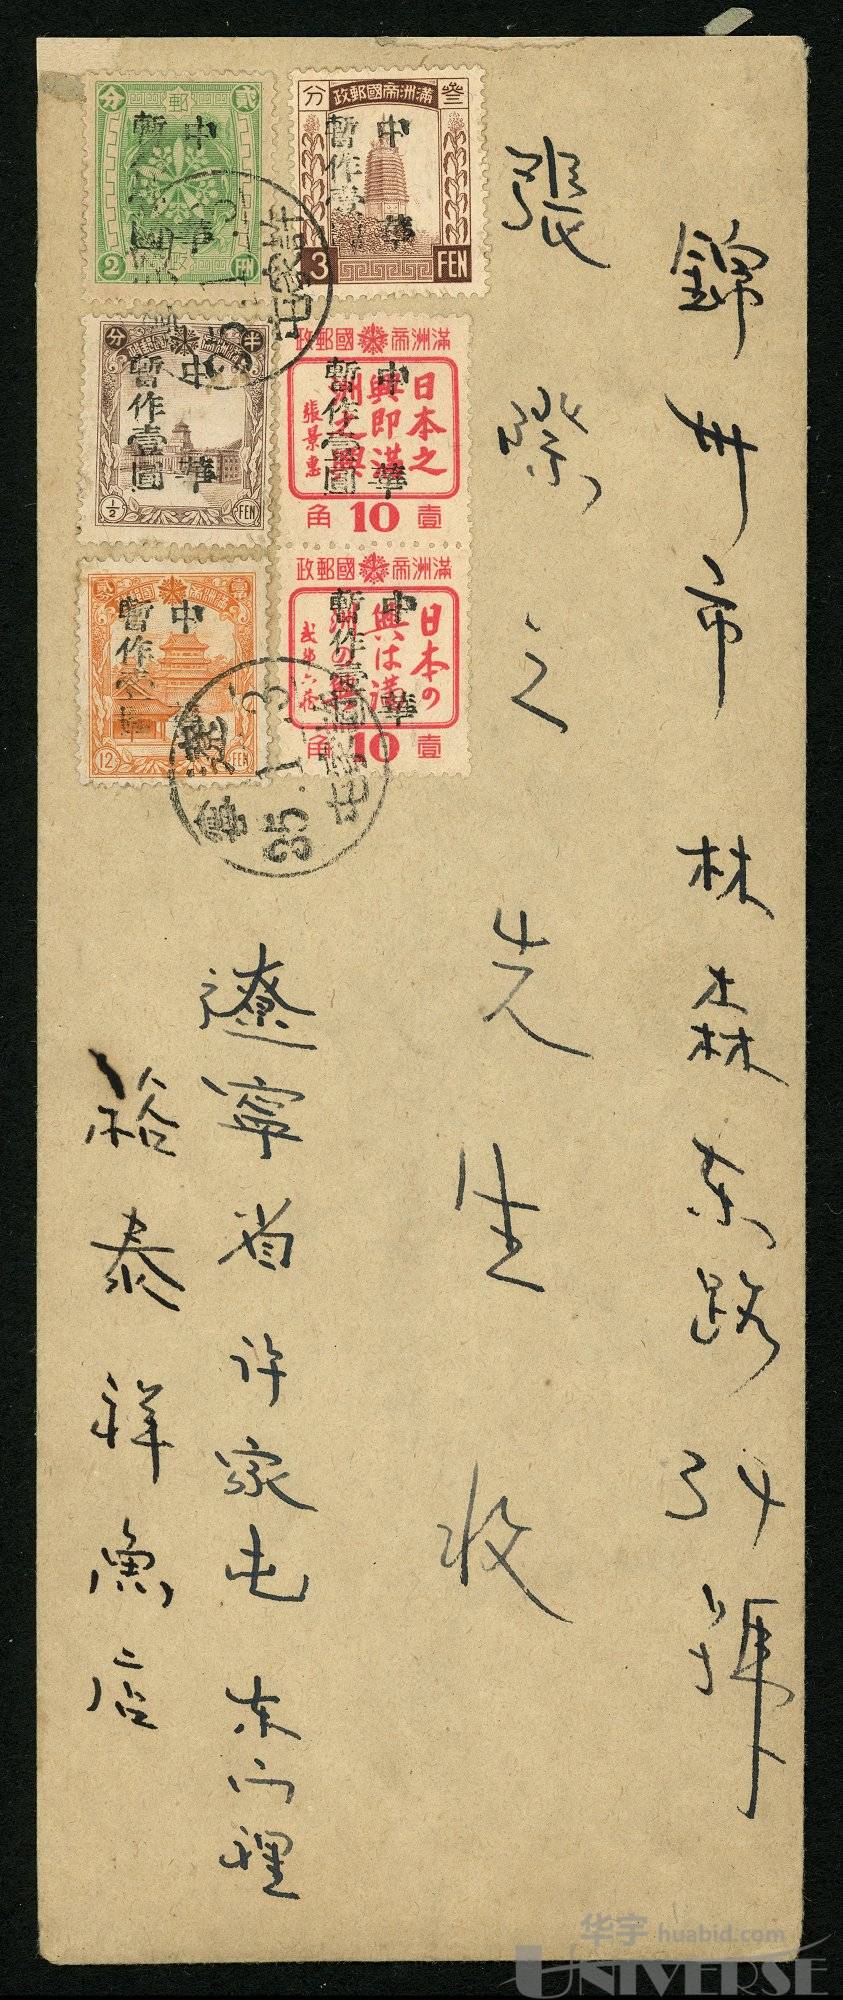 錦州市林森东路34號
張紫之先生收
遼寧省许家屯东门裡
裕泰祥魚店
叁 滿洲帝國郵政 分
中華
暫作壹圓
3 FEN
貳 郵 分
中華
暫作壹圓
2 FEN
滿洲帝國郵政
日本之
興即滿
洲之興
張景惠
中華
暫作壹圓
壹 10 角
半 分
中華
暫作壹圓
½ FEN
滿洲帝國郵政
日本の
興は滿
洲の興
武部六藏
中華
暫作壹圓
壹 10 角
中華
暫作壹圓
12 FEN
許家屯
35.1.
遼寧
35.1.
許家屯
华宇 huabid.com
UNIVERSE